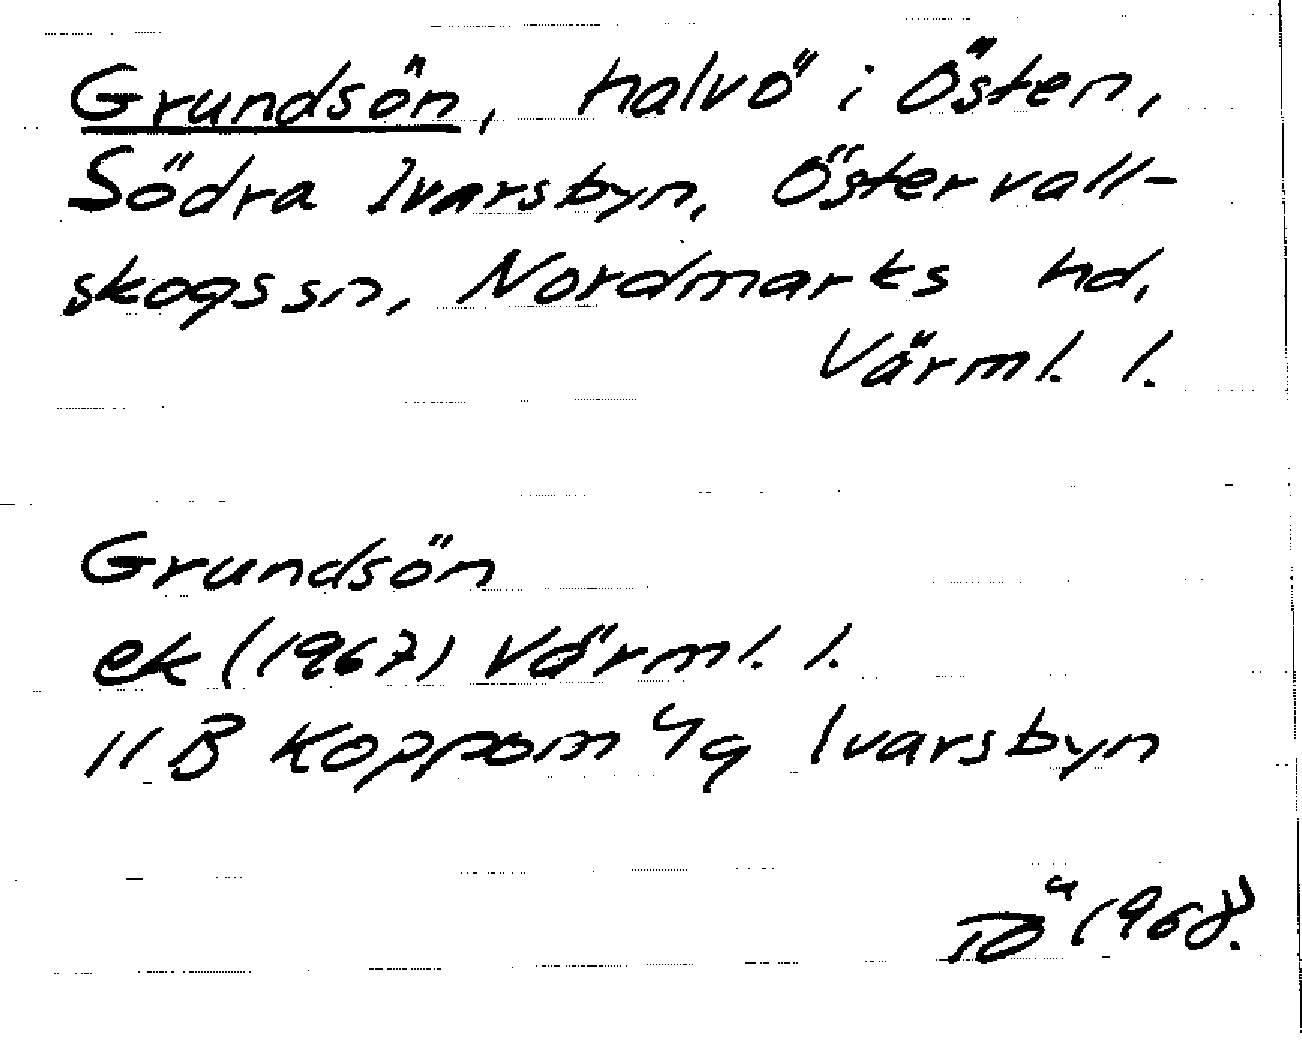 Grundsön, halvö i Östen,
Södra Ivarsbyn, Östervall-
skogs sn, Nordmarks hd,
Värml. l.
Grundsön
ek (1967) Värml. l.
11 B Koppom 4g Ivarsbyn
1968.